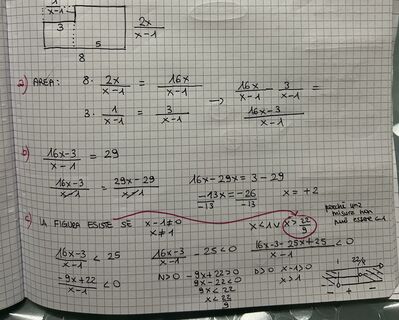 1/(x-1)
3
5
8
2x/(x-1)
a) AREA: 8 · 2x/(x-1) = 16x/(x-1) → 16x/(x-1) - 3/(x-1) =
3 · 1/(x-1) = 3/(x-1)
(16x-3)/(x-1)
b) (16x-3)/(x-1) = 29
(16x-3)/(x-1) = (29x-29)/(x-1)
16x-29x = 3-29
-13x/-13 = -26/-13
x = +2
c) LA FIGURA ESISTE SE x-1≠0
x≠1
x<1 v x> 22/9
perché una
misura non
può essere <1
(16x-3)/(x-1) < 25
(16x-3)/(x-1) - 25 < 0
(16x-3-25x+25)/(x-1) < 0
(-9x+22)/(x-1) < 0
N>0 -9x+22>0
9x-22<0
x < 22/9
D>0 x-1>0
x>1
1 22/9
- + -